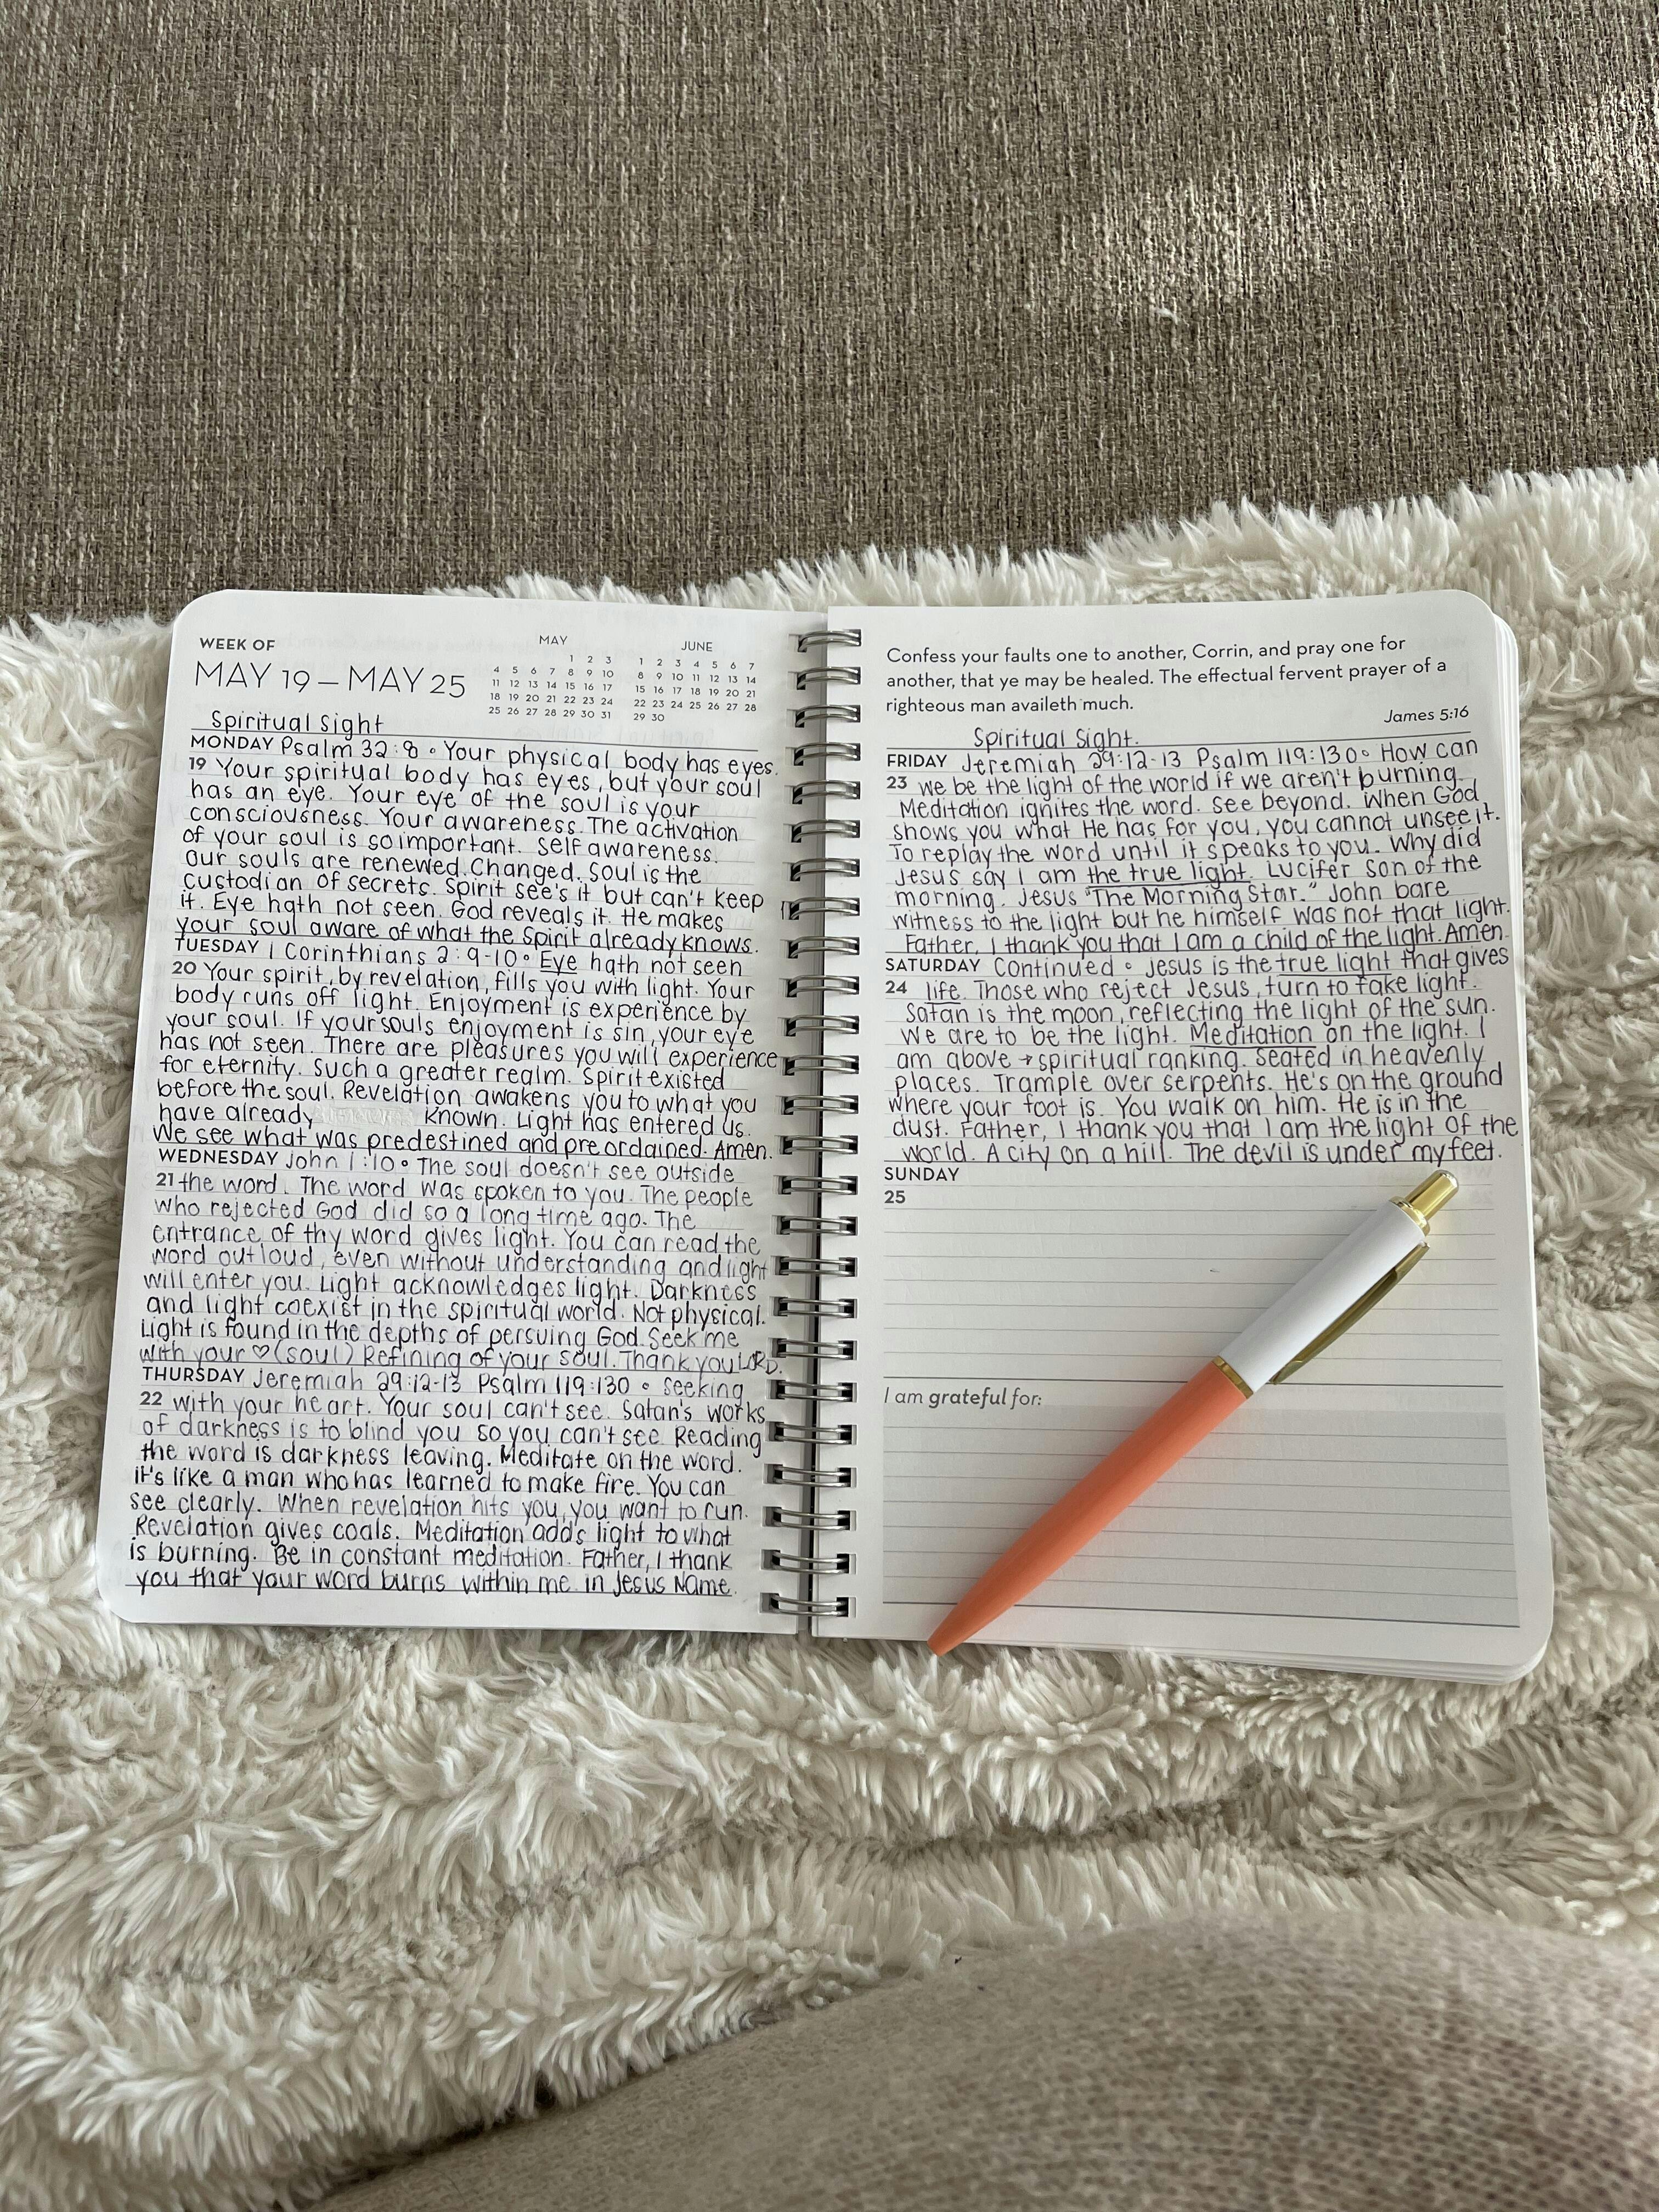 WEEK OF
MAY 19 – MAY 25
MAY
1 2 3
4 5 6 7 8 9 10
11 12 13 14 15 16 17
18 19 20 21 22 23 24
25 26 27 28 29 30 31
JUNE
1 2 3 4 5 6 7
8 9 10 11 12 13 14
15 16 17 18 19 20 21
22 23 24 25 26 27 28
29 30
Spiritual Sight
MONDAY Psalm 32:8 • Your physical body has eyes.
19 Your spiritual body has eyes, but your soul
has an eye. Your eye of the soul is your
consciousness. Your awareness. The activation
of your soul is so important. Self awareness.
Our souls are renewed. Changed. Soul is the
custodian of secrets. Spirit see's it but can't keep
it. Eye hath not seen. God reveals it. He makes
your soul aware of what the Spirit already knows.
TUESDAY 1 Corinthians 2:9-10 • Eye hath not seen
20 Your spirit, by revelation, fills you with light. Your
body runs off light. Enjoyment is experience by
your soul. If your souls enjoyment is sin, your eye
has not seen. There are pleasures you will experience
for eternity. Such a greater realm. Spirit existed
before the soul. Revelation awakens you to what you
have already known. Light has entered us.
We see what was predestined and preordained. Amen.
WEDNESDAY John 1:10 • The soul doesn't see outside
21 the word. The word was spoken to you. The people
who rejected God did so a long time ago. The
entrance of thy word gives light. You can read the
word out loud, even without understanding and light
will enter you. Light acknowledges light. Darkness
and light coexist in the spiritual world. Not physical.
Light is found in the depths of persuing God. Seek me
with your ♡ (soul) Refining of your soul. Thank you LORD.
THURSDAY Jeremiah 29:12-13 Psalm 119:130 • Seeking
22 with your heart. Your soul can't see. Satan's works
of darkness is to blind you so you can't see. Reading
the word is darkness leaving. Meditate on the word.
it's like a man who has learned to make fire. You can
see clearly. When revelation hits you, you want to run.
Revelation gives coals. Meditation adds light to what
is burning. Be in constant meditation. Father, I thank
you that your word burns within me. in Jesus Name.
Confess your faults one to another, Corrin, and pray one for
another, that ye may be healed. The effectual fervent prayer of a
righteous man availeth much.
James 5:16
Spiritual Sight.
FRIDAY Jeremiah 29:12-13 Psalm 119:130 • How can
23 we be the light of the world if we aren't burning.
Meditation ignites the word. See beyond. When God
shows you what He has for you, you cannot unsee it.
To replay the word until it speaks to you. Why did
Jesus say I am the true light. Lucifer son of the
morning. Jesus "The Morning Star." John bare
witness to the light but he himself was not that light.
Father, I thank you that I am a child of the light. Amen.
SATURDAY Continued • Jesus is the true light that gives
24 life. Those who reject Jesus, turn to fake light.
Satan is the moon, reflecting the light of the sun.
We are to be the light. Meditation on the light. I
am above → spiritual ranking. Seated in heavenly
places. Trample over serpents. He's on the ground
where your foot is. You walk on him. He is in the
dust. Father, I thank you that I am the light of the
world. A city on a hill. The devil is under my feet.
SUNDAY
25
I am grateful for: